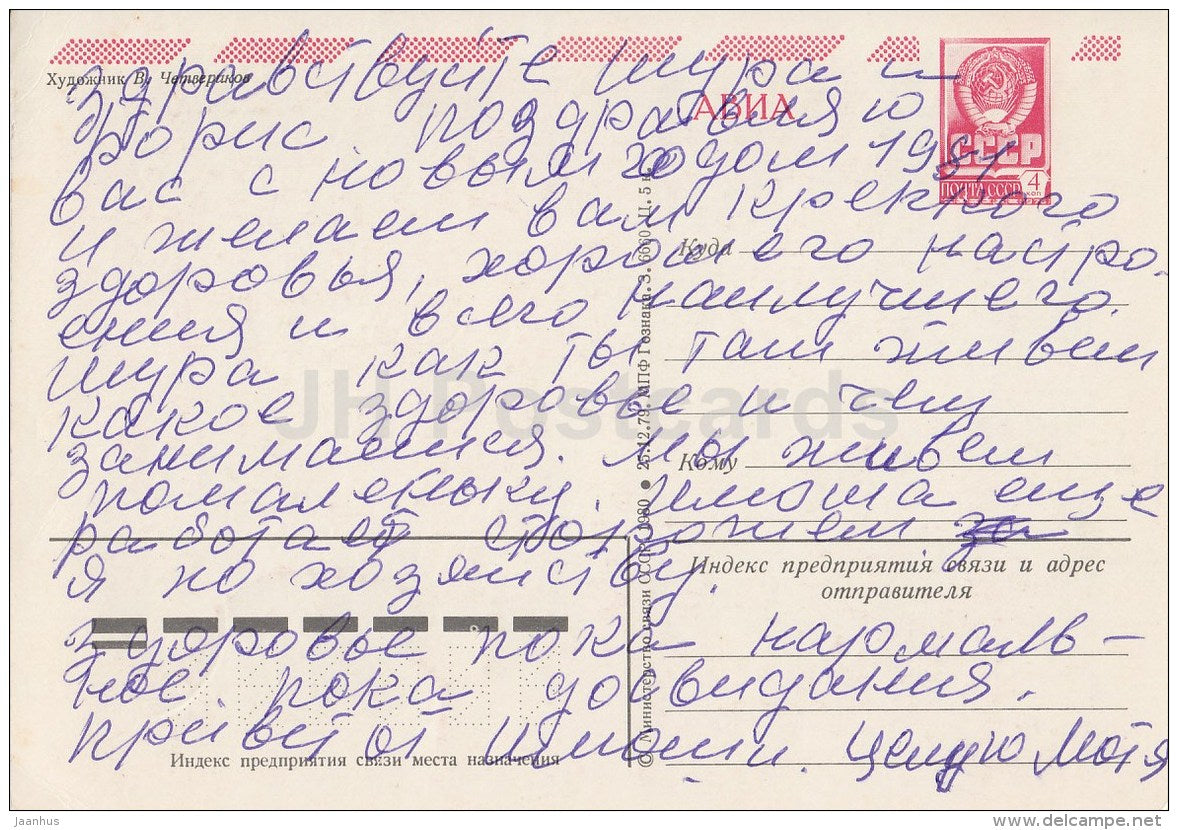 Художник В. Четвериков
АВИА
СССР
ПОЧТА СССР 4 КОП
Здравствуйте Шура и
Борис поздравляю
вас с новым годом 1981
и желаем вам крепкого
здоровья, хорошего настро-
ения и всего наилучшего.
Шура как ты там живеш
какое здоровье и чем
занимаешся. Мы живем
помаленьку. Имоша еще
работает сторожем
я по хозяйству.
здоровье пока нармаль-
ное. пока досвидания.
привет от Имоши. Целую Мотя
Куда
Кому
Индекс предприятия связи и адрес
отправителя
Индекс предприятия связи места назначения
© Министерство связи СССР. 1980 ● 25.12.79. МПФ Гознака. З. 6660 Ц. 5 к.
JH Postcards
Jaanhus
delcampe.net